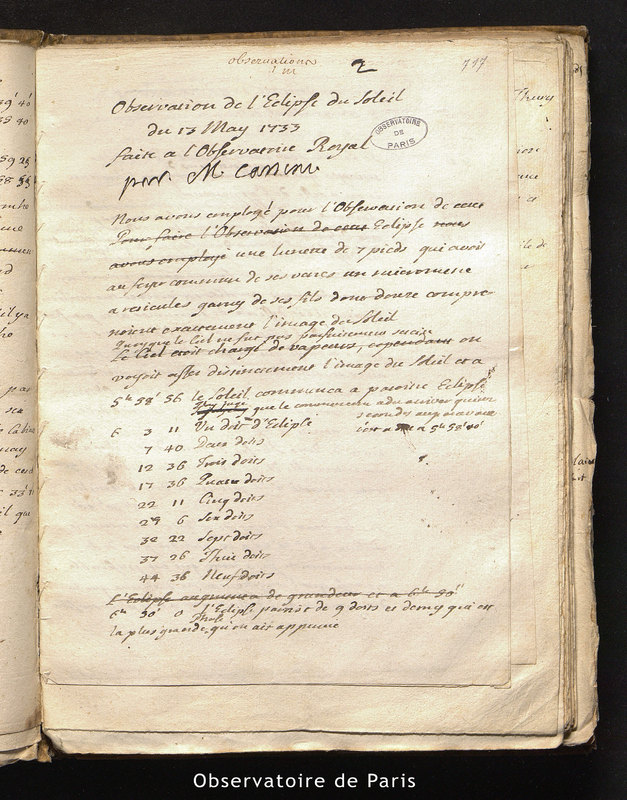 observations
m
2
717
Observation de l'Eclipse du Soleil
du 13 May 1733
faite a l'Observatoire Royal
par M. Cassini
OBSERVATOIRE
DE
PARIS
Nous avons employé pour l'Observation de cette
Pour faire l'Observation de cette Eclipse nous
avons employé une lunette de 7 pieds qui avoit
au foyer commun de ses verres un micrometre
a reticules garny de ses fils dont douze compre-
noient exactement l'image du Soleil
quoyque le Ciel ne fut pas parfaitement serein
Le Ciel etoit chargé de vapeurs, cependant on
voyoit assés distinctement l'image du Soleil et a
5h 58' 56 le Soleil commença a paroitre Eclipsé
que le commencement a du arriver
secondes auparavant
a 5h 58'
6 3 11 Un doit d'Eclipse
7 40 Deux doits
12 36 Trois doits
17 36 Quatre doits
22 11 Cinq doits
27 6 Six doits
32 22 Sept doits
37 26 Huit doits
44 36 Neuf doits
L'Eclipse augmenta de grandeur et a 6h 50'
6h 50' 0 l'Eclipse parut de 9 doits et demy qui est
la plus grande qu'on ait apperçue
Thury
Observatoire de Paris